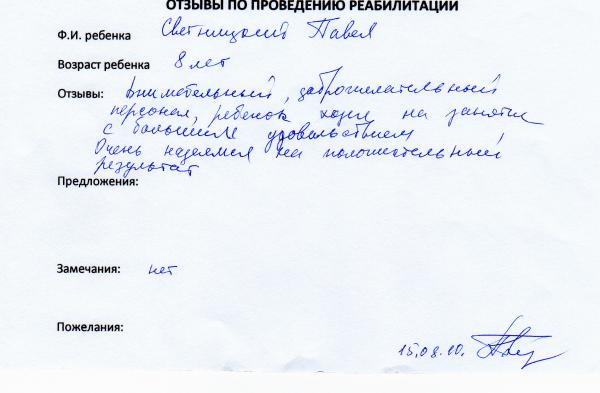 ОТЗЫВЫ ПО ПРОВЕДЕНИЮ РЕАБИЛИТАЦИИ
Ф.И. ребенка Светницкий Павел
Возраст ребенка 8 лет
Отзывы: Внимательный, доброжелательный
персонал, ребенок ходил на занятия
с большим удовольствием
Очень надеемся на положительный
результат
Предложения:
Замечания: нет
Пожелания:
15.08.10.